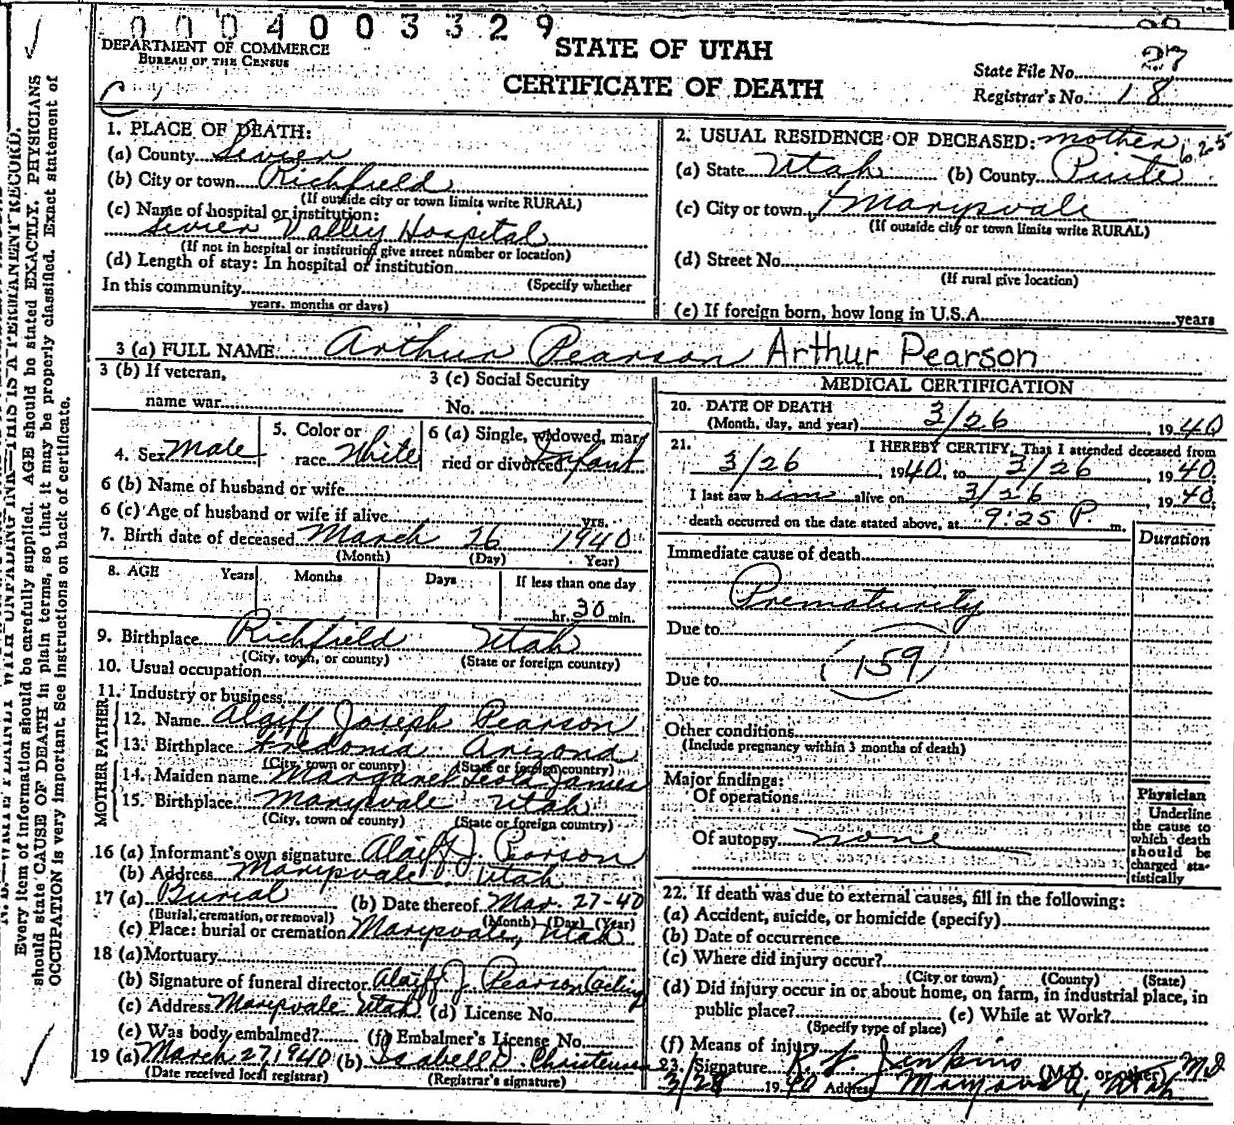 0 0 0 4 0 0 3 3 2 9
DEPARTMENT OF COMMERCE
BUREAU OF THE CENSUS
STATE OF UTAH
CERTIFICATE OF DEATH
State File No. 27
Registrar's No. 18
Every item of information should be carefully supplied. AGE should be stated EXACTLY. PHYSICIANS
should state CAUSE OF DEATH in plain terms, so that it may be properly classified. Exact statement of
OCCUPATION is very important. See instructions on back of certificate.
1. PLACE OF DEATH:
(a) County Sevier
(b) City or town Richfield
(If outside city or town limits write RURAL)
(c) Name of hospital or institution:
Sevier Valley Hospital
(If not in hospital or institution give street number or location)
(d) Length of stay: In hospital or institution
(Specify whether
In this community
years, months or days)
2. USUAL RESIDENCE OF DECEASED: mother
(a) State Utah (b) County Piute
(c) City or town Marysvale
(If outside city or town limits write RURAL)
(d) Street No.
(If rural give location)
(e) If foreign born, how long in U.S.A. years
3 (a) FULL NAME Arthur Pearson Arthur Pearson
3 (b) If veteran,
name war
3 (c) Social Security
No.
4. Sex Male
5. Color or
race White
6 (a) Single, widowed, mar
ried or divorced Infant
6 (b) Name of husband or wife
6 (c) Age of husband or wife if alive yrs.
7. Birth date of deceased March 26 1940
(Month) (Day) Year)
8. AGE Years Months Days If less than one day
hr. 30 min.
9. Birthplace Richfield Utah
(City, town, or county) (State or foreign country)
10. Usual occupation
11. Industry or business
FATHER
12. Name Algiff Joseph Pearson
13. Birthplace Fredonia Arizona
(City, town or county) (State or foreign country)
MOTHER
14. Maiden name Margaret Leola James
15. Birthplace Marysvale Utah
(City, town of county) (State or foreign country)
16 (a) Informant's own signature Algiff J. Pearson
(b) Address Marysvale Utah
17 (a) Burial (b) Date thereof Mar. 27-40
(Burial, cremation, or removal) (Month) (Day) (Year)
(c) Place: burial or cremation Marysvale, Utah
18 (a) Mortuary
(b) Signature of funeral director Algiff J. Pearson (acting
(c) Address Marysvale Utah (d) License No.
(e) Was body embalmed? (f) Embalmer's License No.
19 (a) March 27, 1940 (b) Isabell D. Christensen
(Date received local registrar) (Registrar's signature)
MEDICAL CERTIFICATION
20. DATE OF DEATH
(Month, day, and year) 3/26 1940
21. I HEREBY CERTIFY, That I attended deceased from
3/26 1940, to 3/26, 1940,
I last saw him alive on 3/26, 1940,
death occurred on the date stated above, at 9:25 P. m.
Duration
Immediate cause of death
Prematurity
Due to
(159)
Due to
Other conditions
(Include pregnancy within 3 months of death)
Major findings:
Of operations
Of autopsy none
Physician
Underline
the cause to
which death
should be
charged sta-
tistically
22. If death was due to external causes, fill in the following:
(a) Accident, suicide, or homicide (specify)
(b) Date of occurrence
(c) Where did injury occur?
(City or town) (County) (State)
(d) Did injury occur in or about home, on farm, in industrial place, in
public place? (e) While at Work?
(Specify type of place)
(f) Means of injury
23. Signature Jenkins (M.D. or other) MD
3/28 1940 Address Marysvale, Utah